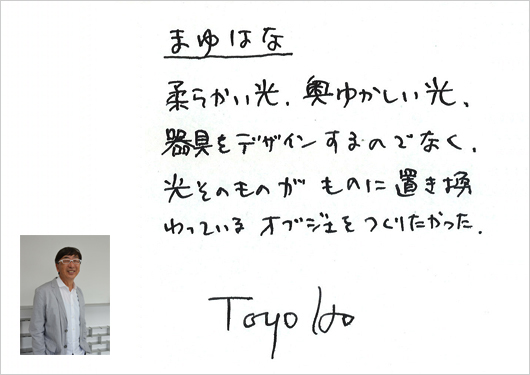 まゆはな
柔らかい光、奥ゆかしい光、
器具をデザインするのでなく、
光そのものがものに置き換
わっているオブジェをつくりたかった。
Toyo Ito